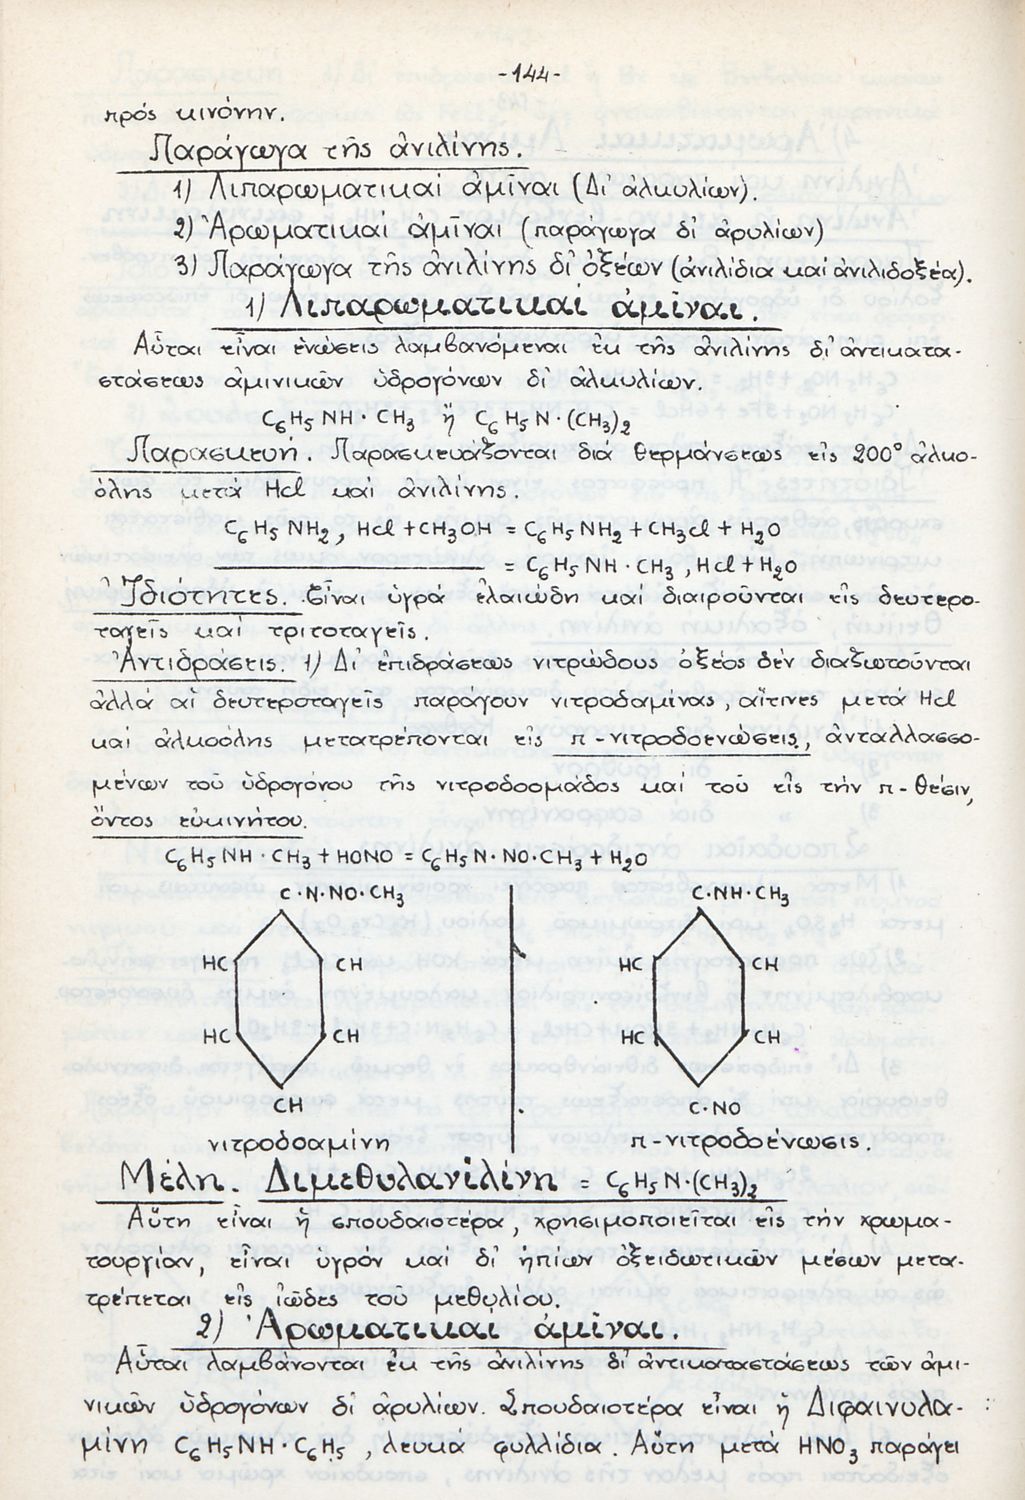 -144-
πρός κινόνην.
Παράγωγα τῆς ἀνιλίνης.
1) Λιπαρωματικαί ἀμῖναι (Δι' ἀλκυλίων).
2) Ἀρωματικαί ἀμῖναι (παράγωγα δι' ἀρυλίων)
3) Παράγωγα τῆς ἀνιλίνης δι' ὀξέων (ἀνιλίδια και ἀνιλιδοξέα).
1) Λιπαρωματικαί ἀμῖναι.
Αὗται εἶναι ἑνώσεις λαμβανόμεναι ἐκ τῆς ἀνιλίνης δι' ἀντικατα-
στάσεως ἀμινικῶν ὑδρογόνων δι' ἀλκυλίων.
C₆H₅NH·CH₃ ἤ C₆H₅N·(CH₃)₂
Παρασκευή. Παρασκευάζονται διά θερμάνσεως εἰς 200° ἀλκο-
όλης μετά Hcl καί ἀνιλίνης.
C₆H₅NH₂, Hcl + CH₃OH = C₆H₅NH₂ + CH₃cl + H₂O
= C₆H₅NH·CH₃, Hcl + H₂O
Ἰδιότητες. Εἶναι ὑγρά ἐλαιώδη καί διαιροῦνται εἰς δευτερο-
ταγεῖς καί τριτοταγεῖς.
Ἀντιδράσεις. 1) Δι' ἐπιδράσεως νιτρώδους ὀξέος δέν διαζωτοῦνται
ἀλλά αἱ δευτεροταγεῖς παράγουν νιτροδαμίνας, αἵτινες μετά Hcl
καί ἀλκοόλης μετατρέπονται εἰς π-νιτροδοενώσεις, ἀνταλλασσο-
μένων τοῦ ὑδρογόνου τῆς νιτροδοομάδος καί τοῦ εἰς τήν π-θέσιν,
ὄντος εὐκινήτου.
C₆H₅NH·CH₃ + HONO = C₆H₅N·NO·CH₃ + H₂O
C·N·NO·CH₃ C·NH·CH₃
HC CH HC CH
HC CH HC CH
CH C·NO
νιτροδοαμίνη π-νιτροδοένωσις
Μέλη. Διμεθυλανιλίνη = C₆H₅N·(CH₃)₂
Αὕτη εἶναι ἡ σπουδαιοτέρα, χρησιμοποιεῖται εἰς τήν χρωμα-
τουργίαν, εἶναι ὑγρόν καί δι' ἠπίων ὀξειδωτικῶν μέσων μετα-
τρέπεται εἰς ἰῶδες τοῦ μεθυλίου.
2) Ἀρωματικαί ἀμῖναι.
Αὗται λαμβάνονται ἐκ τῆς ἀνιλίνης δι' ἀντικαταστάσεως τῶν ἀμι-
νικῶν ὑδρογόνων δι' ἀρυλίων. Σπουδαιοτέρα εἶναι ἡ Διφαινυλα-
μίνη C₆H₅NH·C₆H₅, λευκά φυλλίδια. Αὕτη μετά HNO₃ παράγει